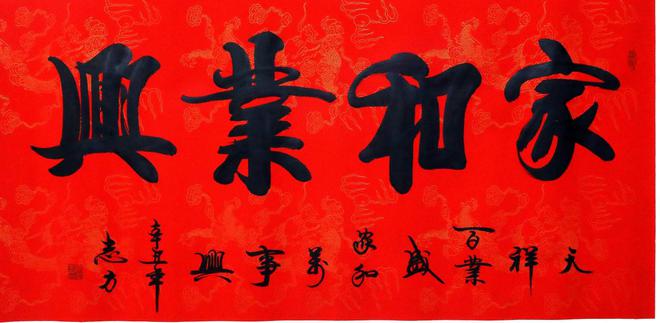 家和業興
天祥百業盛家和萬事興
辛丑年
志力